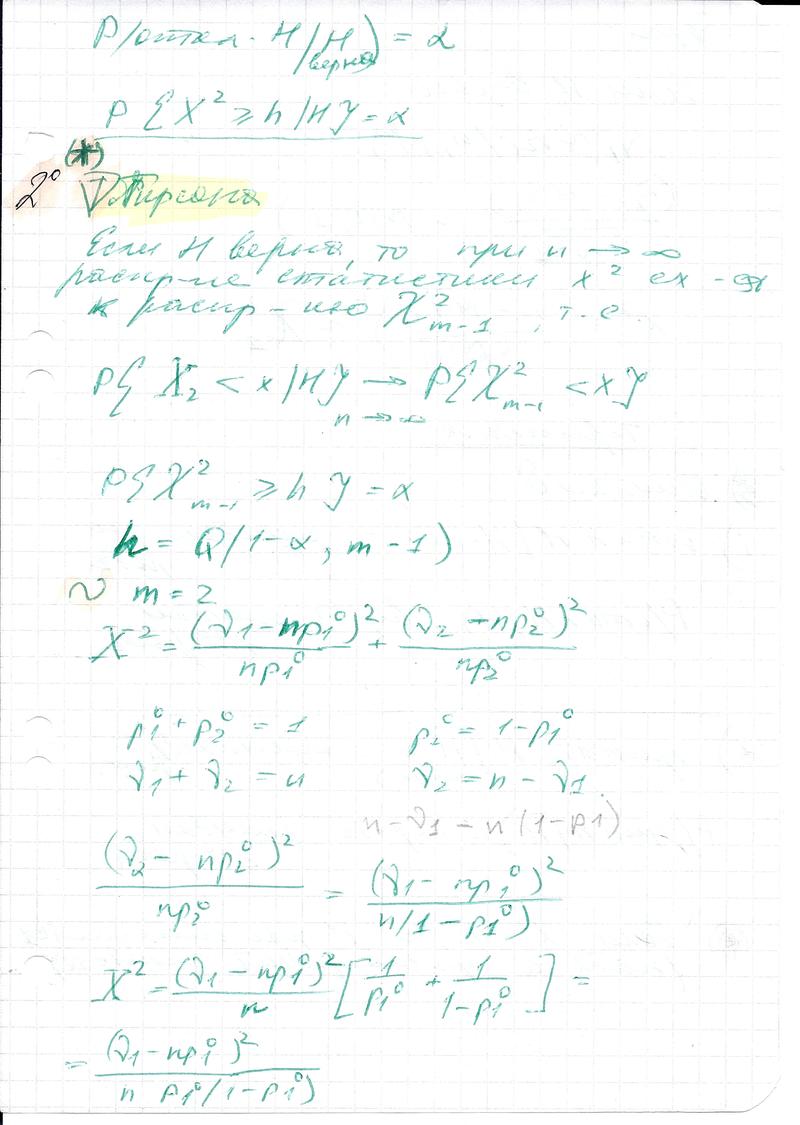 P(откл. H/H верна) = α
P{X² ≥ h/H} = α
(*)
2° Т Пирсона
Если H верна, то при n → ∞
распр-ие статистики X² сх-ся
к распр-ию χ²ₘ₋₁, т.е.
P{X₂ < x/H} → P{χ²ₘ₋₁ < x}
n → ∞
P{χ²ₘ₋₁ ≥ h} = α
h = Q(1-α, m-1)
~ m = 2
X² = (ν₁ - np₁⁰)²/np₁⁰ + (ν₂ - np₂⁰)²/np₂⁰
p₁⁰ + p₂⁰ = 1 p₂⁰ = 1-p₁⁰
ν₁ + ν₂ = n ν₂ = n - ν₁.
n - ν₁ - n(1-p1)
(ν₂ - np₂⁰)²/np₂⁰ = (ν₁ - np₁⁰)²/n(1-p₁⁰)
X² = (ν₁ - np₁⁰)²/n [1/p₁⁰ + 1/1-p₁⁰] =
= (ν₁ - np₁⁰)²/n p₁⁰(1-p₁⁰)